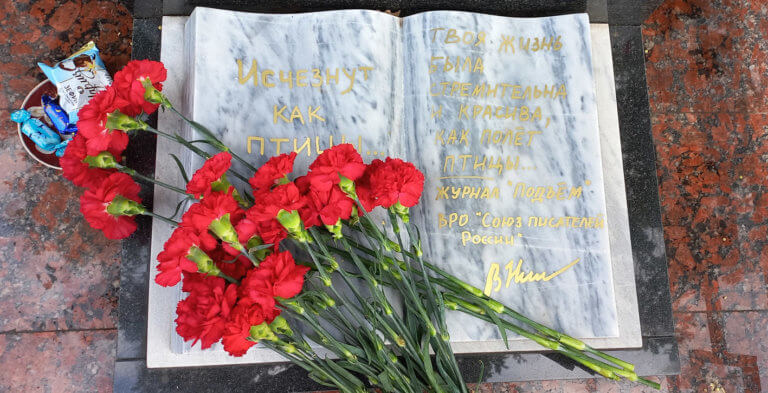 Исчезнут
как
птицы...
Твоя жизнь
была
стремительна
и красива,
как полёт
птицы...
журнал "Подъём"
ВРО "Союз писателей
России"